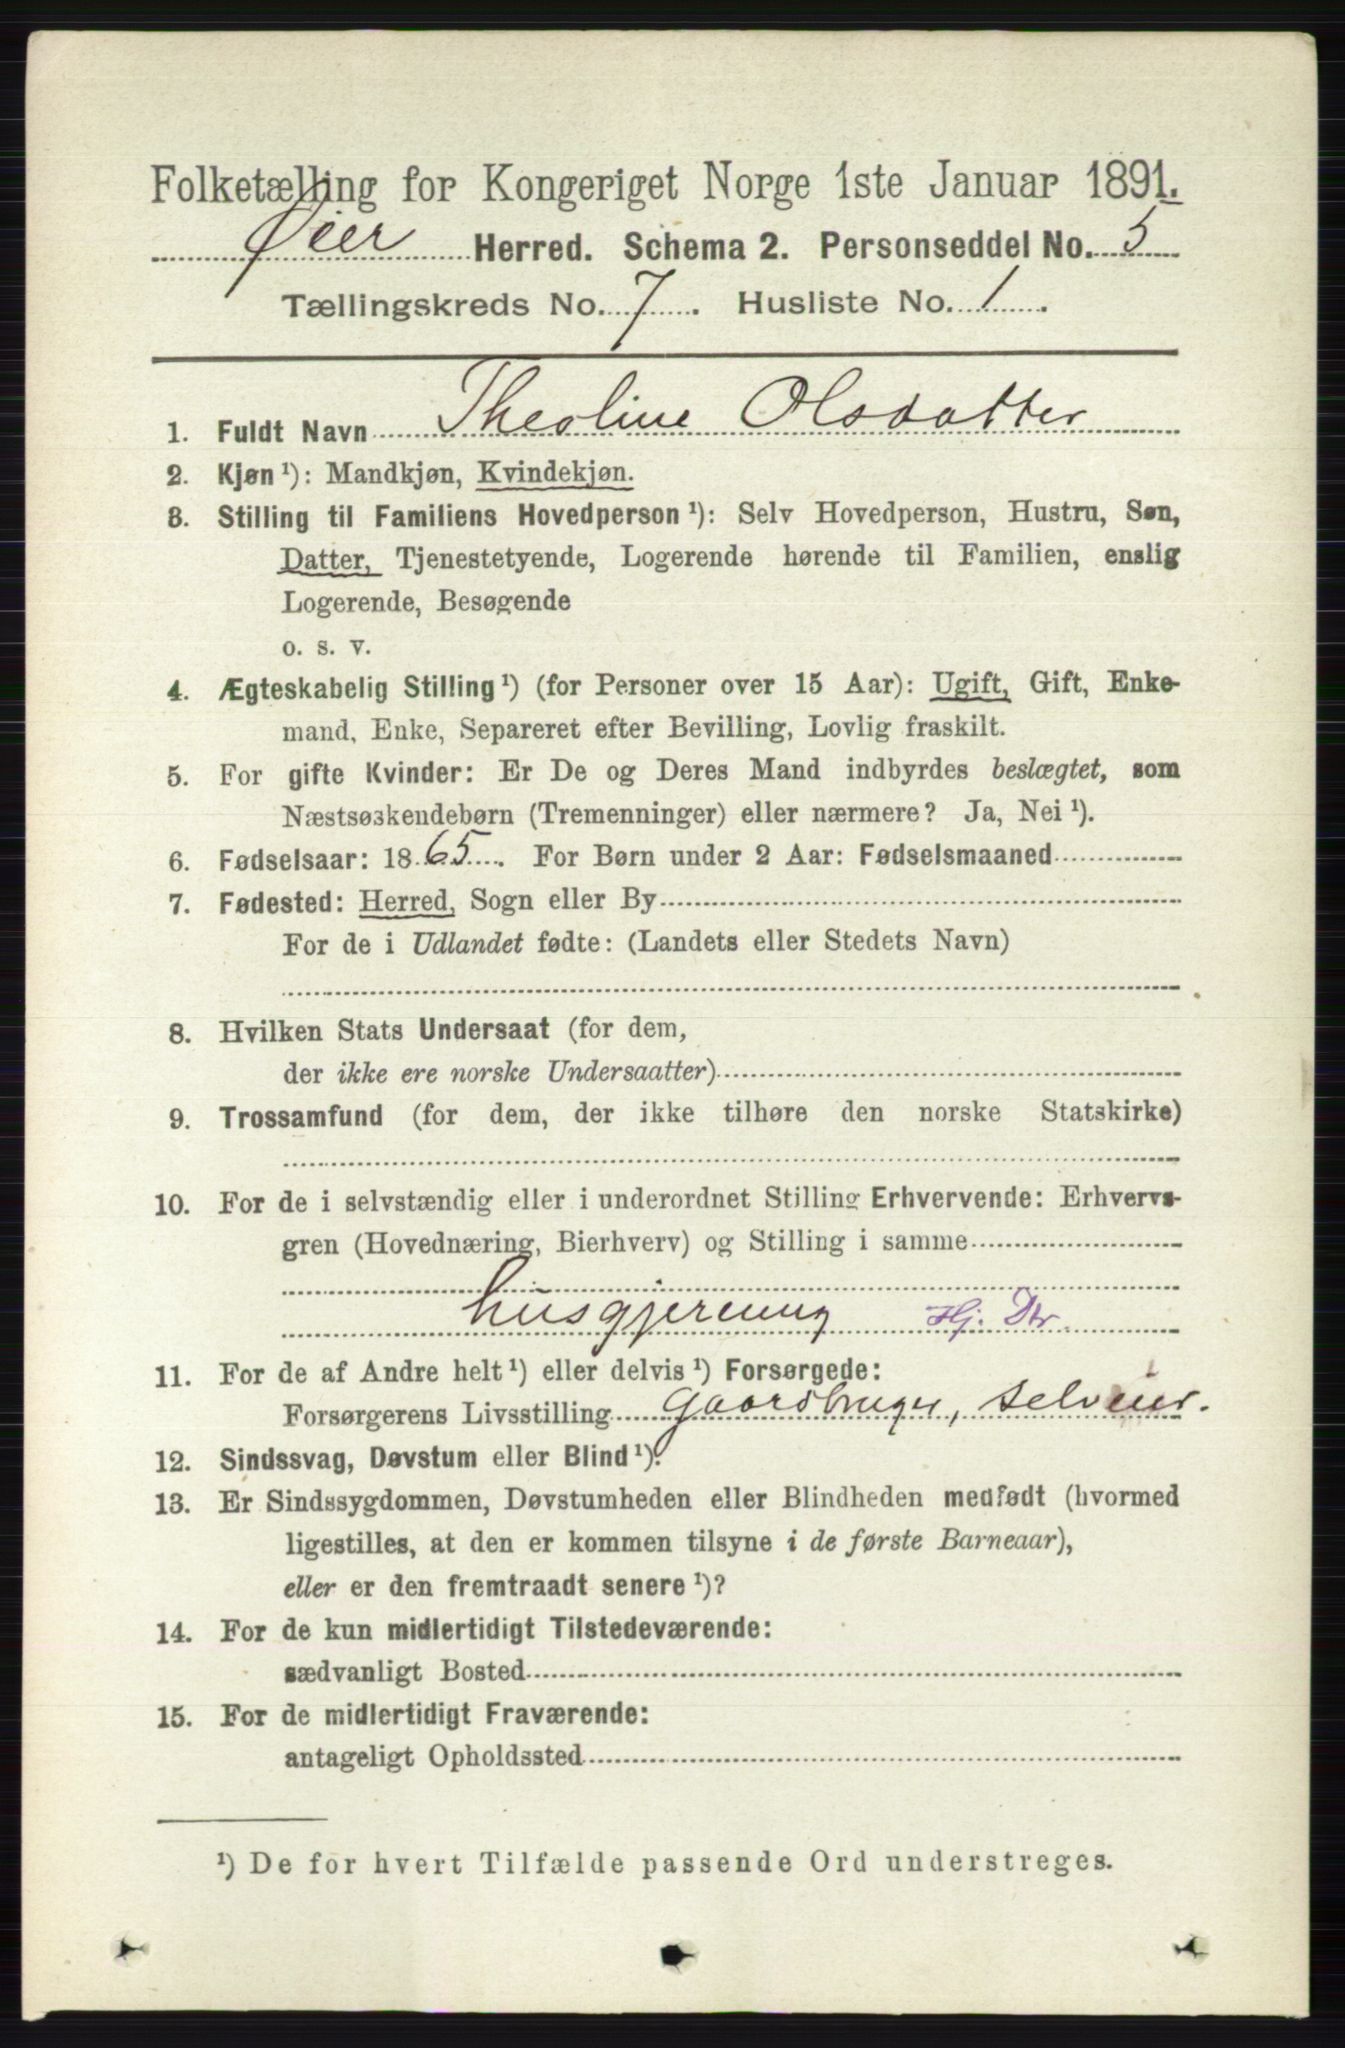 Folketælling for Kongeriget Norge 1ste Januar 1891.
Øier Herred. Schema 2. Personseddel No. 5
Tællingskreds No. 7. Husliste No. 1.
1. Fuldt Navn Theoline Olsdatter
2. Kjøn¹): Mandkjøn, Kvindekjøn.
3. Stilling til Familiens Hovedperson¹): Selv Hovedperson, Hustru, Søn,
Datter, Tjenestetyende, Logerende hørende til Familien, enslig
Logerende, Besøgende
o. s. v.
4. Ægteskabelig Stilling¹) (for Personer over 15 Aar): Ugift, Gift, Enke-
mand, Enke, Separeret efter Bevilling, Lovlig fraskilt.
5. For gifte Kvinder: Er De og Deres Mand indbyrdes beslægtet, som
Næstsøskendebørn (Tremenninger) eller nærmere? Ja, Nei¹).
6. Fødselsaar: 1865. For Børn under 2 Aar: Fødselsmaaned
7. Fødested: Herred, Sogn eller By
For de i Udlandet fødte: (Landets eller Stedets Navn)
8. Hvilken Stats Undersaat (for dem,
der ikke ere norske Undersaatter)
9. Trossamfund (for dem, der ikke tilhøre den norske Statskirke)
10. For de i selvstændig eller i underordnet Stilling Erhvervende: Erhvervs-
gren (Hovednæring, Bierhverv) og Stilling i samme
husgjerning Hj. Dtr.
11. For de af Andre helt¹) eller delvis¹) Forsørgede:
Forsørgerens Livsstilling Gaardbruger, selveier.
12. Sindssvag, Døvstum eller Blind¹).
13. Er Sindssygdommen, Døvstumheden eller Blindheden medfødt (hvormed
ligestilles, at den er kommen tilsyne i de første Barneaar),
eller er den fremtraadt senere¹)?
14. For de kun midlertidigt Tilstedeværende:
sædvanligt Bosted
15. For de midlertidigt Fraværende:
antageligt Opholdssted
¹) De for hvert Tilfælde passende Ord understreges.